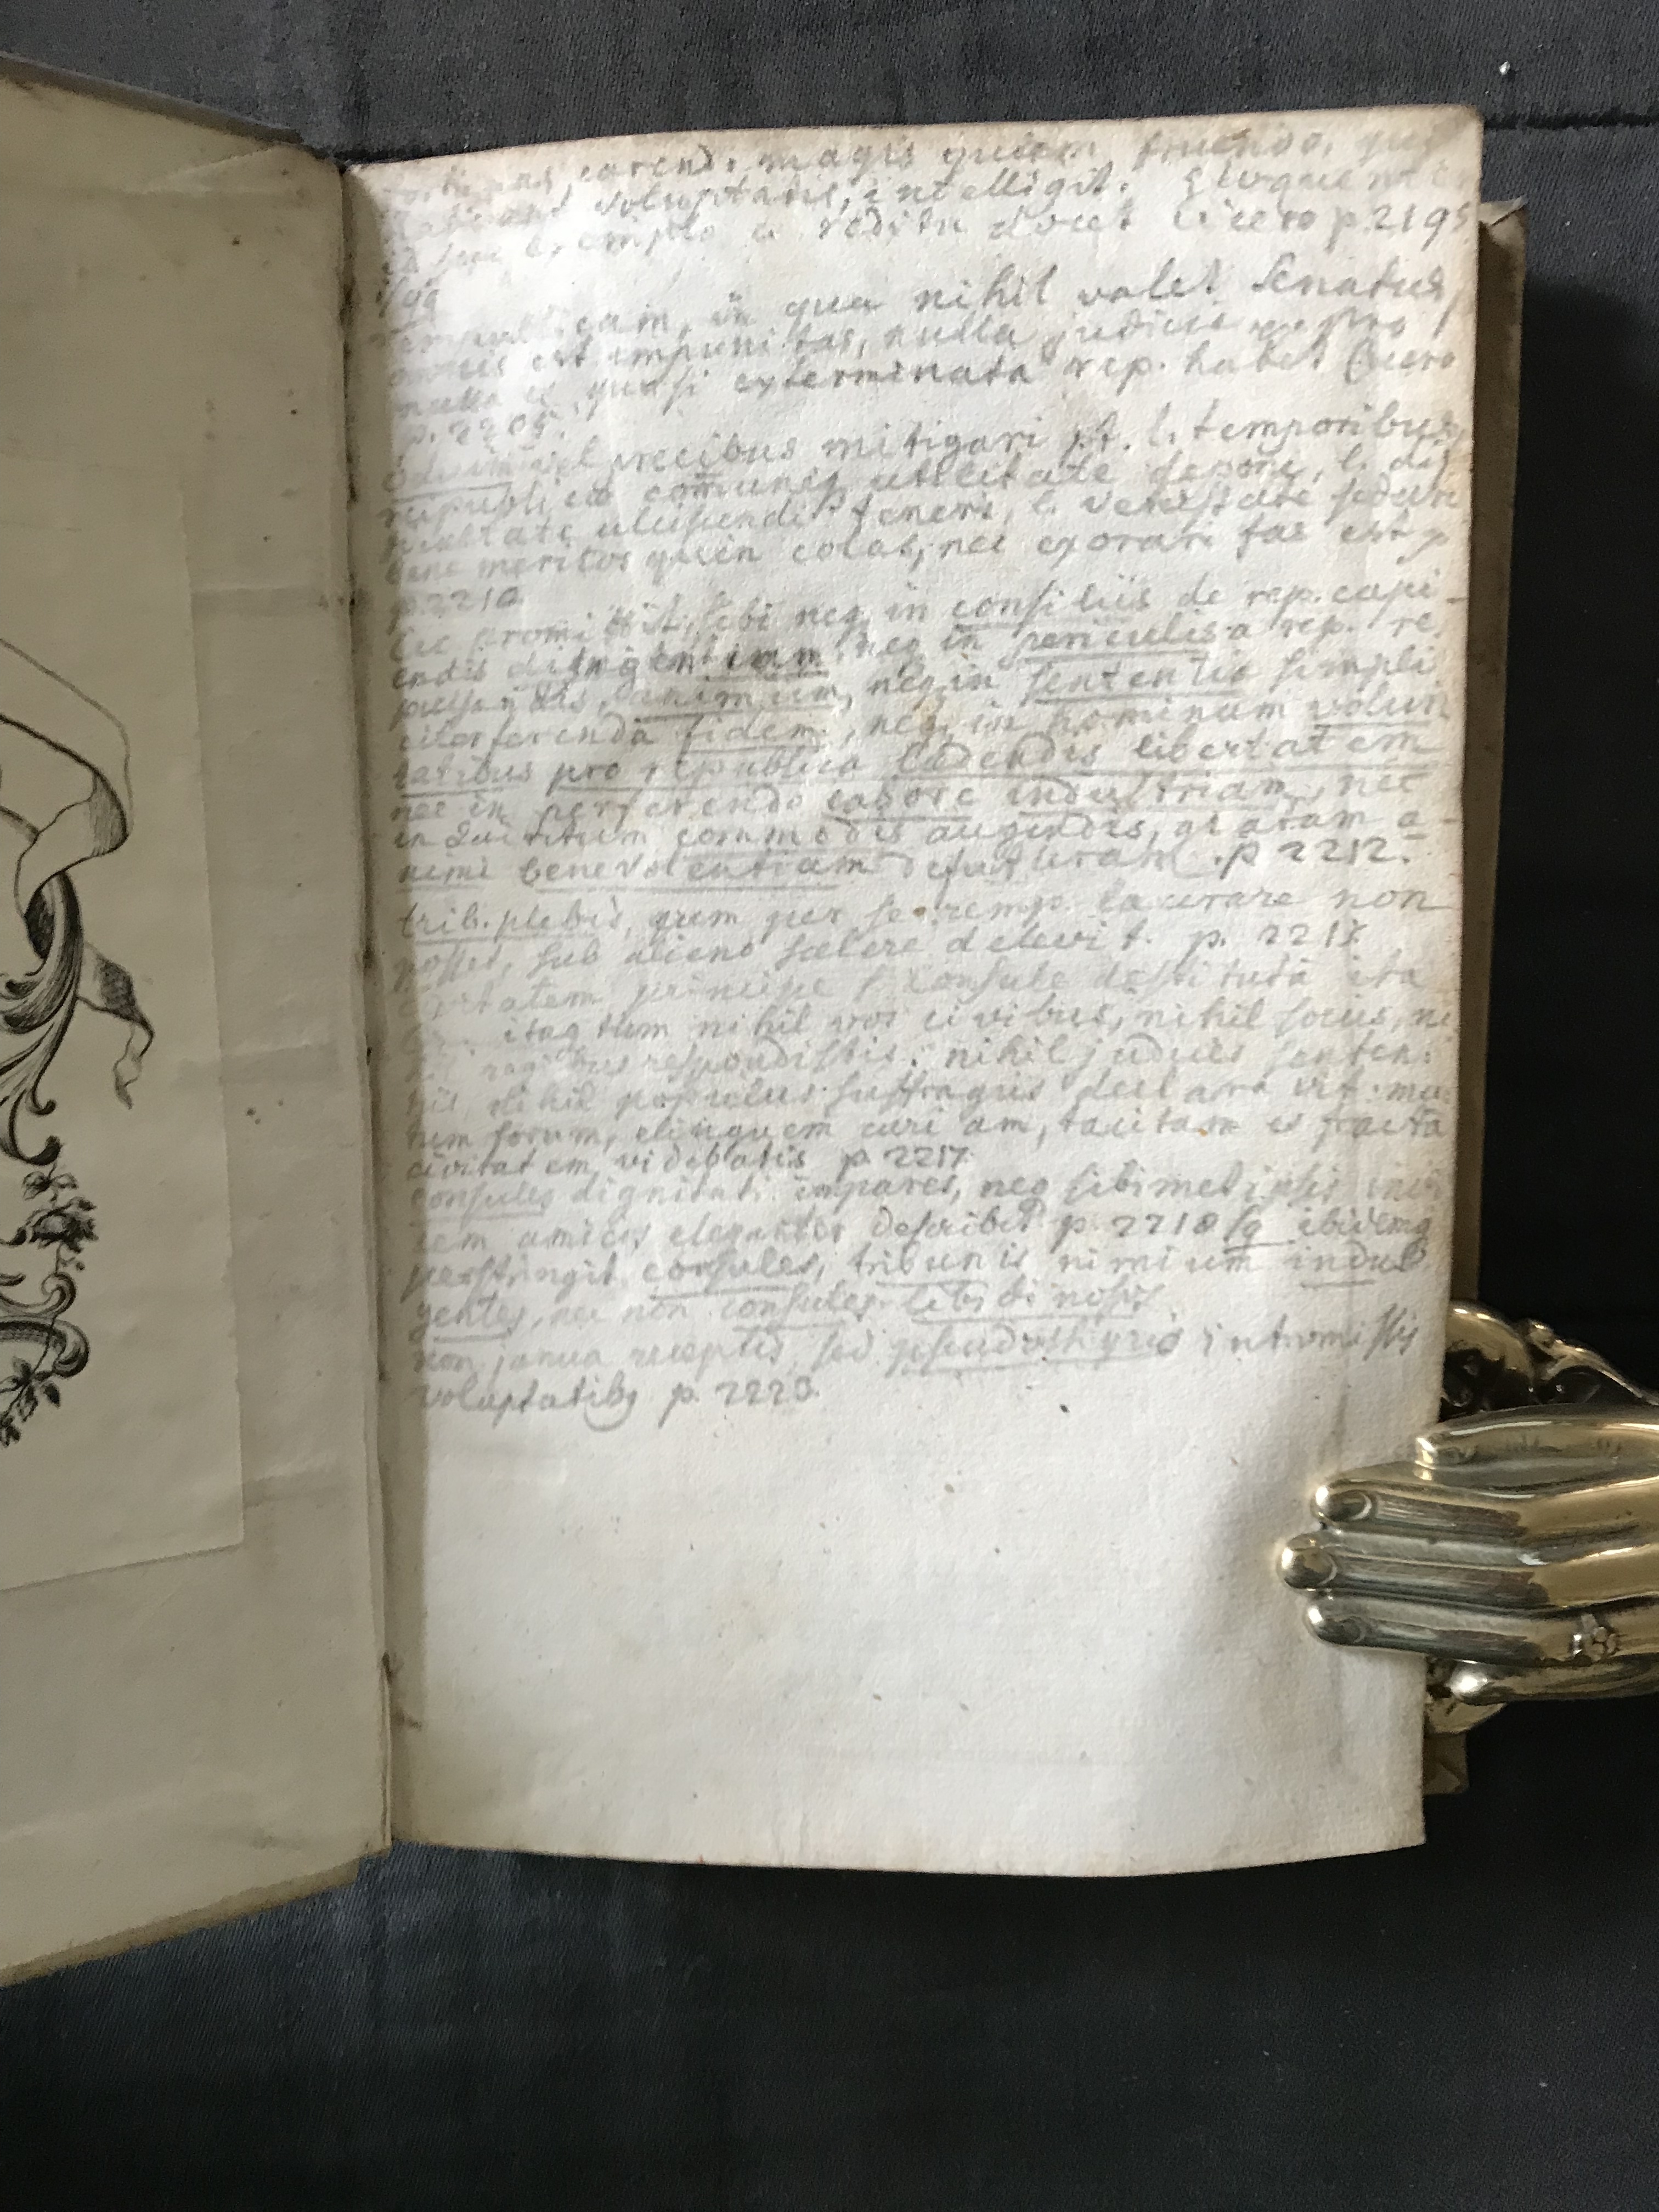 carendo magis quam fruendo, qui
voluptatis, intelligit. Eloquenter
exemplo a reditu docet Cicero p. 2195
sqq
rempublicam, in qua nihil valet Senatus,
omnis est impunitas, nulla judicia
nulla et, quasi exterminata rep. habet Cicero
p. 2205.
odium vel precibus mitigari pt. l. temporibus
reipublicae comunis utilitate deponi, l. dif
ficultate ulciscendi teneri, l. vetustate sedari
bene meritos quin colas, nec exorari fas est
p. 2210
Cic promittit, sibi neq in consiliis de rep. capi-
endis diligentiam, neq in periculis a rep. re
pulsandis, animum, neq in sententia simpli
citer ferenda fidem, neq in hominum volun
tatibus pro republica laedendis libertatem
nec in perferendo labore industriam, nec
in commodis augendis, gratam a-
nimi benevolentiam defuturam. p 2212.
trib. plebis, quem per se remp. lacerare non
posset, sub alieno scelere delevit. p.
civitatem principe s. Consule destituta ita
itaq tum nihil vos civibus, nihil sociis, ni
regibus respondistis: nihil judices senten
tiis, nihil populus suffragiis declaravit: mu
tum forum, elinguem curiam, tacitam et fracta
civitatem, videbatis p 2217.
consules dignitati impares, neq sibimet ipsis
amicis eleganter describit p. 2218 sq ibidemq
perstringit consules, tribunis nimium indul
gentes, nec non consules libidinosis
non janua receptis, sed pseudothyris intromissis
voluptatibq p. 2220.